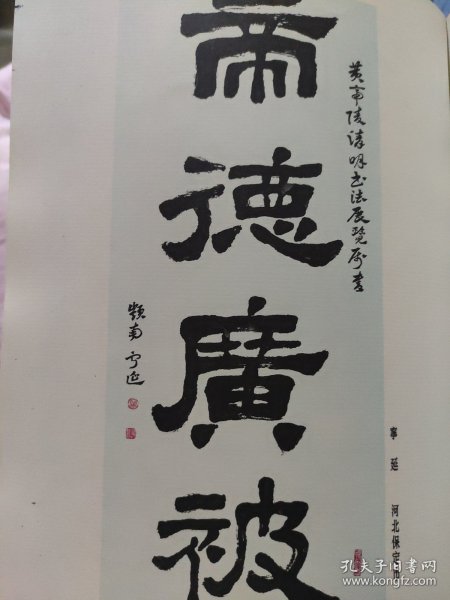 黄帝陵清明书法展览属書
帝德廣被
嶺南寧延
寧延 河北保定市
孔夫子旧书网
www.kongfz.com